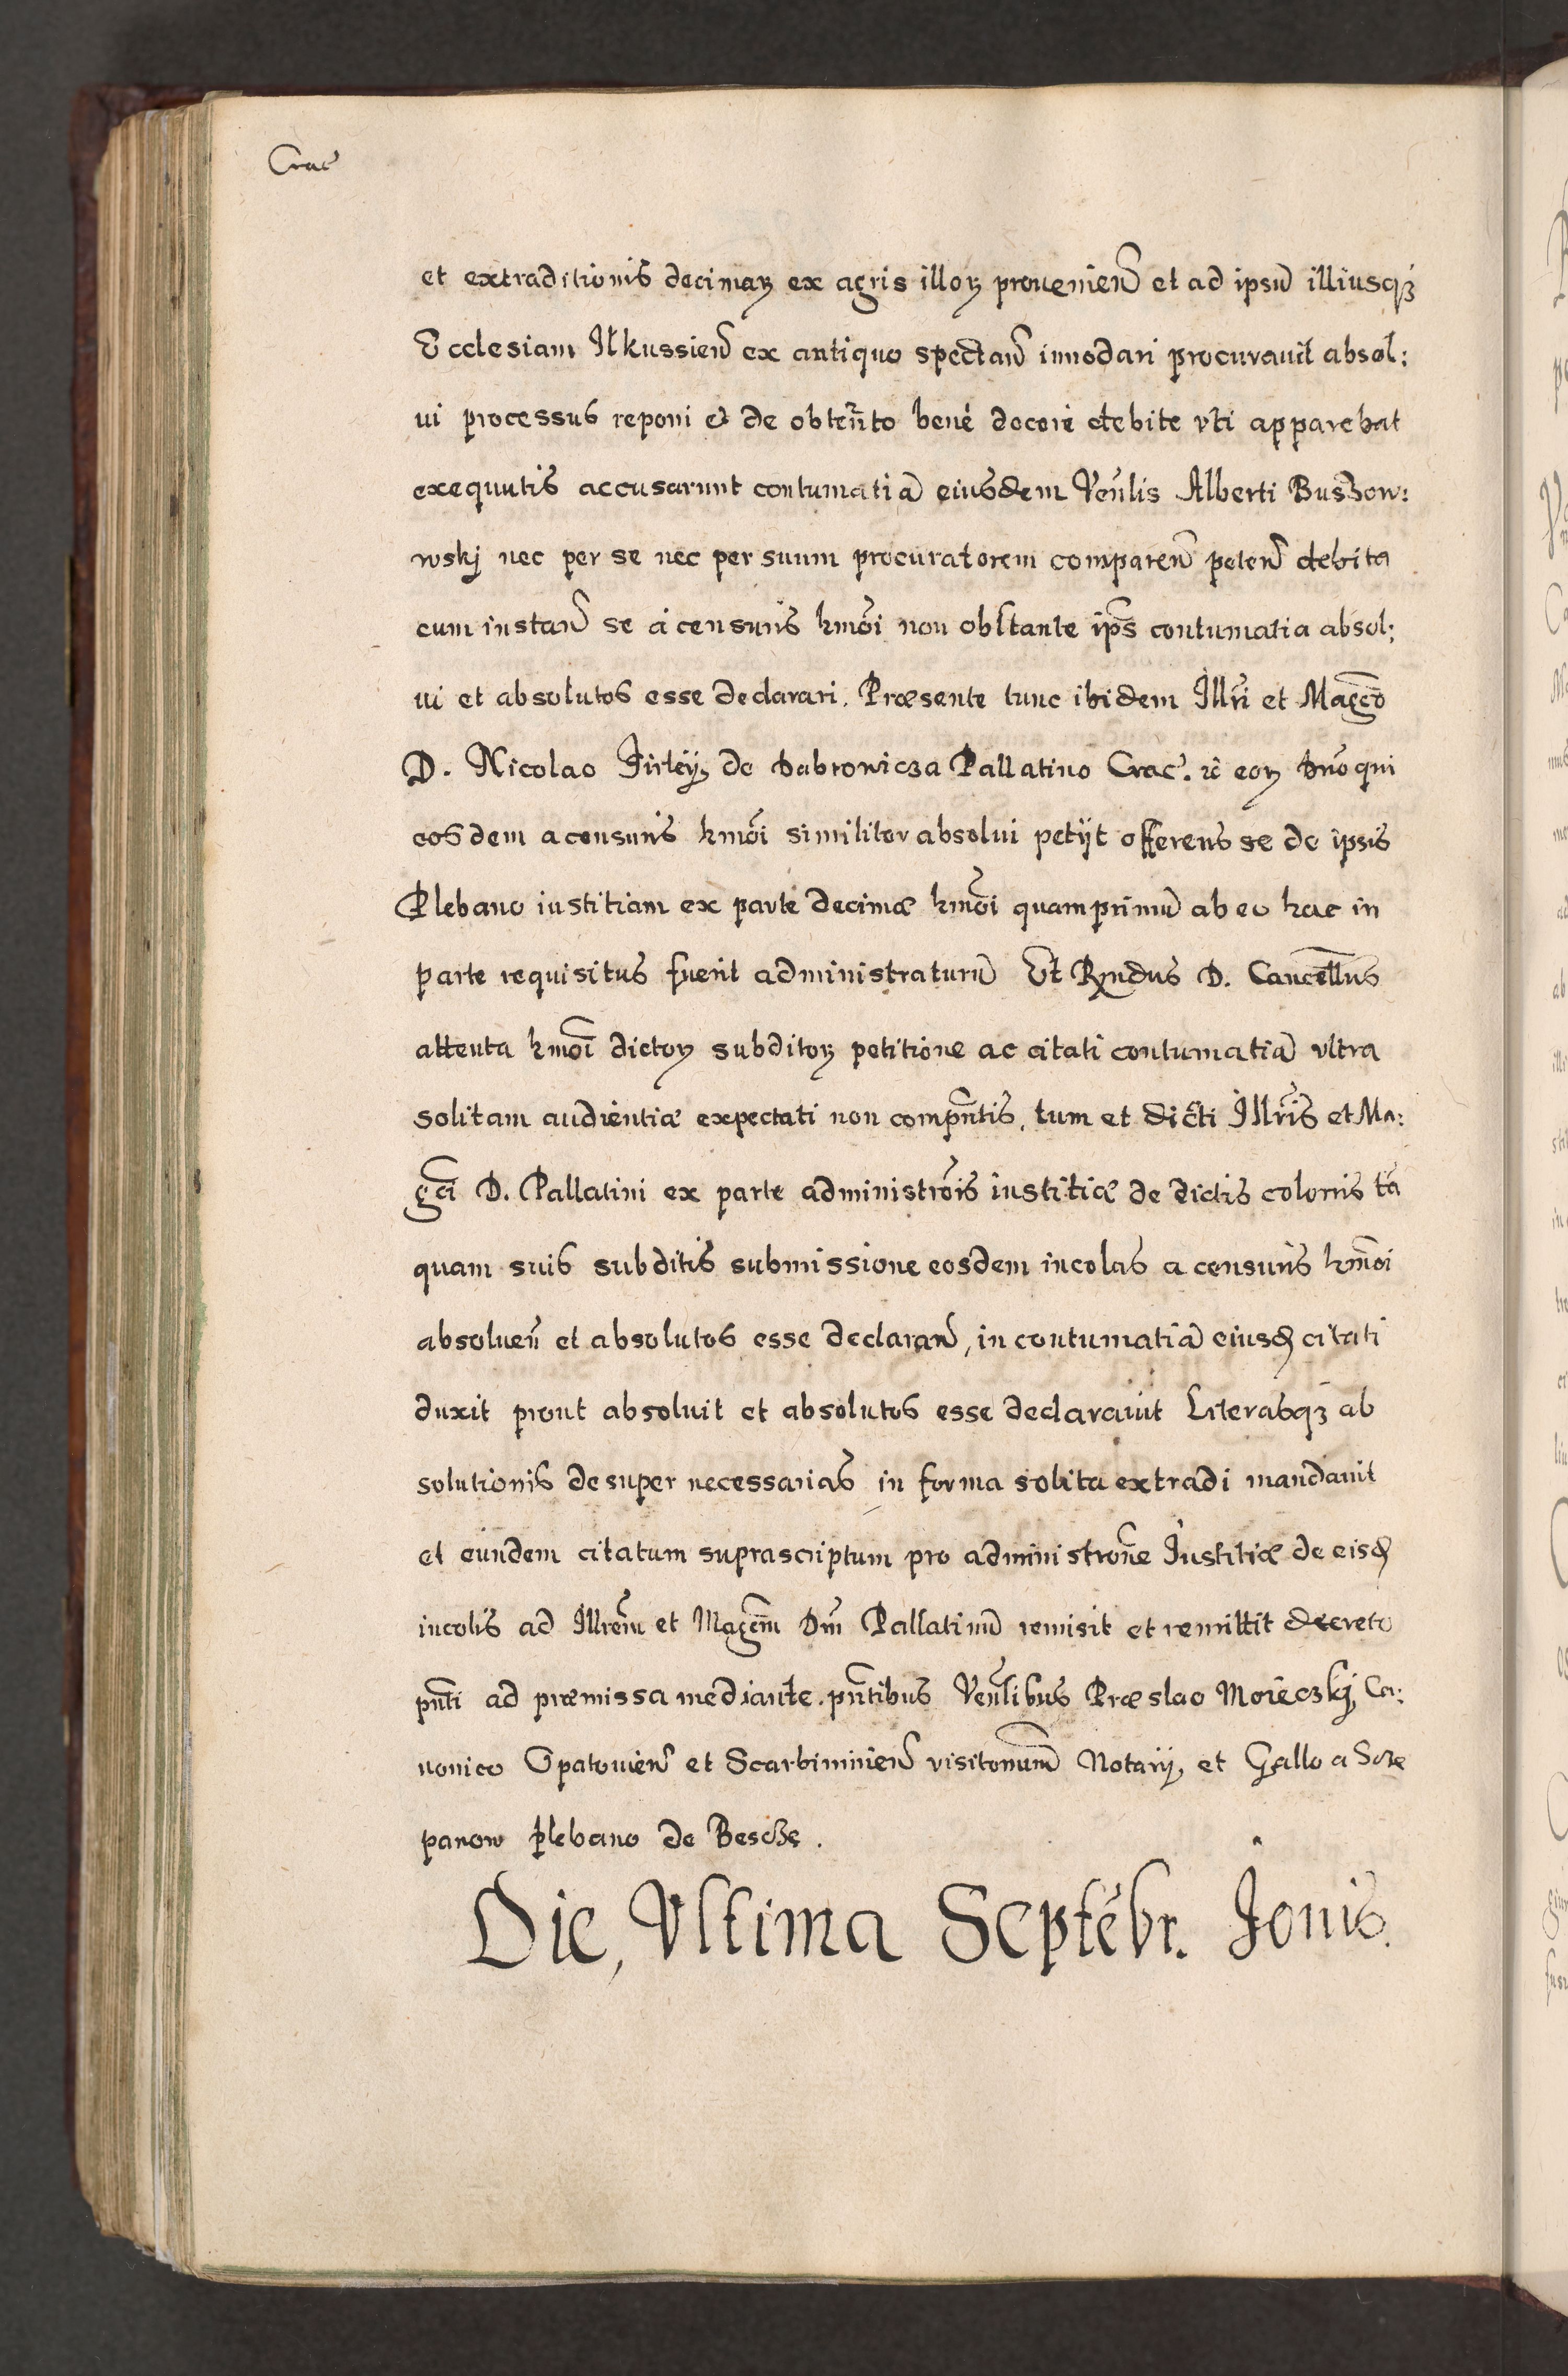 Crac̃
et extraditionis decimaꝝ ex agris illoꝝ prouenieñ et ad ipsũ illiusqꝫ
Ecclesiam Ilkussieñ ex antiquo spectañ innodari procurauit absol:
ui processus reponi et de obteñto bene docere debite vti apparebat
exequutis accusarunt contumatiã eiusdem Veñlis Alberti Buszow:
wskj nec per se nec per suum procuratorem compareñ peteñ debita
cum instañ se a censuris hmõi non obstante ip̃s contumatia absol:
ui et absolutos esse declarari. Præsente tunc ibidem Illr̃i et Magc̃o
D. Nicolao Firlej, de Dabrowicza Pallatino Crac̃. ꝛc̃ eoꝝ Dño qui
eosdem a censuris hmõi similiter absolui petijt offerens se de ipsis
Plebano iustitiam ex parte decimæ hmõi quamprimũ ab eo hac in
parte requisitus fuerit administraturũ Et Rṇdus D. Cancell̃us
attenta hmõi dictoꝝ subditoꝝ petitione ac citati contumatiã vltra
solitam audientiæ expectati non compñtis, tum et dicti Illr̃is et Ma:
gc̃i D. Pallatini ex parte administrõis iustitiæ de dictis colonis tã
quam suis subditis submissione eosdem incolas a censuris hmõi
absolueñ et absolutos esse declarañ, in contumatiã eiusꝺ citati
duxit prout absoluit et absolutos esse declarauit Literasqꝫ ab
solutionis desuper necessarias in forma solita extradi mandauit
et eundem citatum suprascriptum pro administrõne Iustitiæ de eisꝺ
incolis ad Illrem̃ et Magcm̃ Dm̃ Pallatinũ remisit et remittit decreto
pñti ad præmissa mediante. pñtibus Veñlibus Præslao Moreczkj, Ca:
nonico Opatouieñ et Scarbimirieñ visitonum̃ Notarij, et Gallo a Scze
panow plebano de Besczẹ.
Die, Vltima Septẽbr. Iouis.